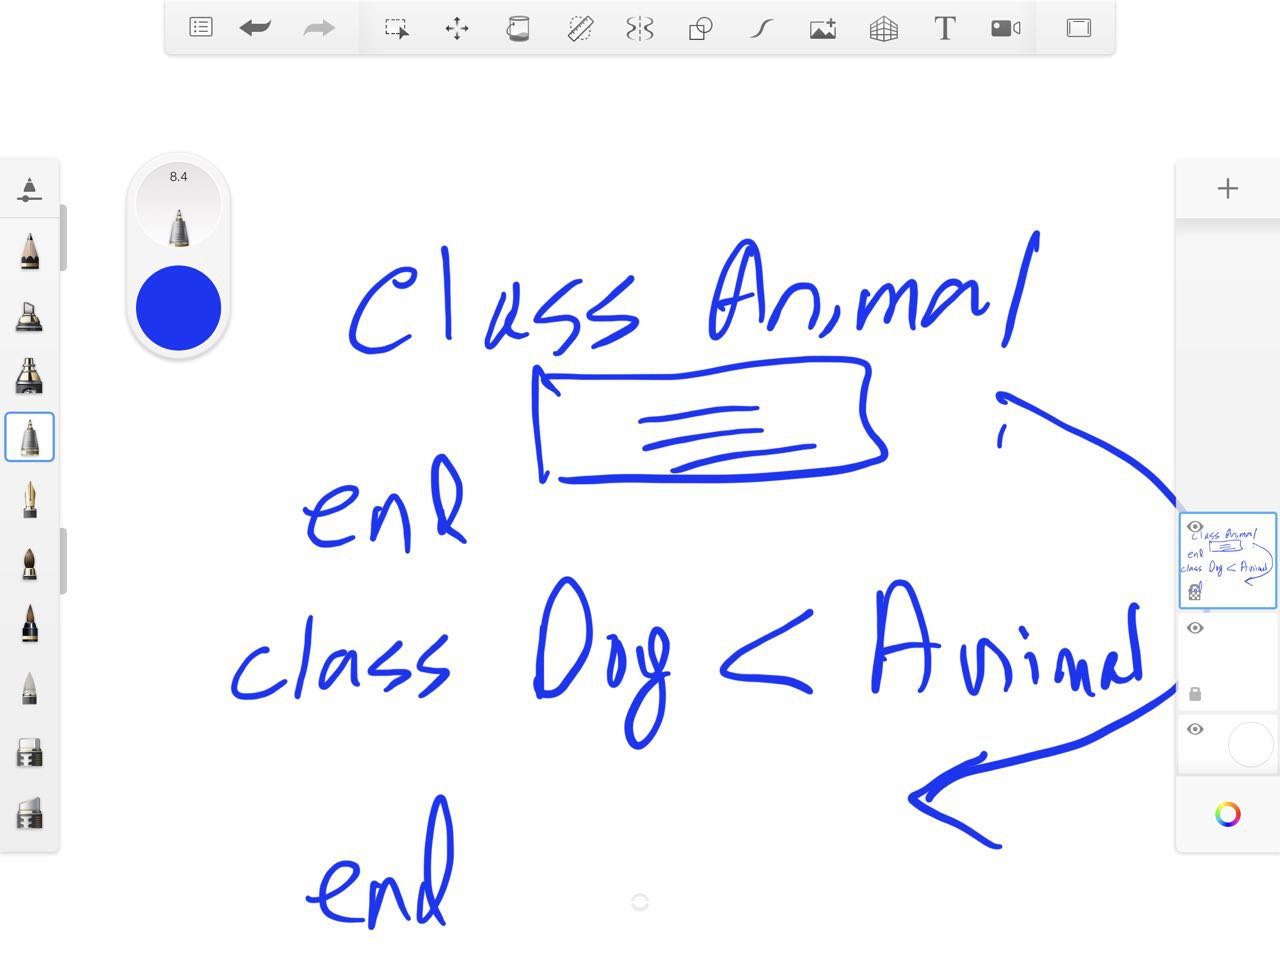 8.4
T
Class Animal
end
class Dog < Animal
end
class Animal
end
class Dog < Animal
end